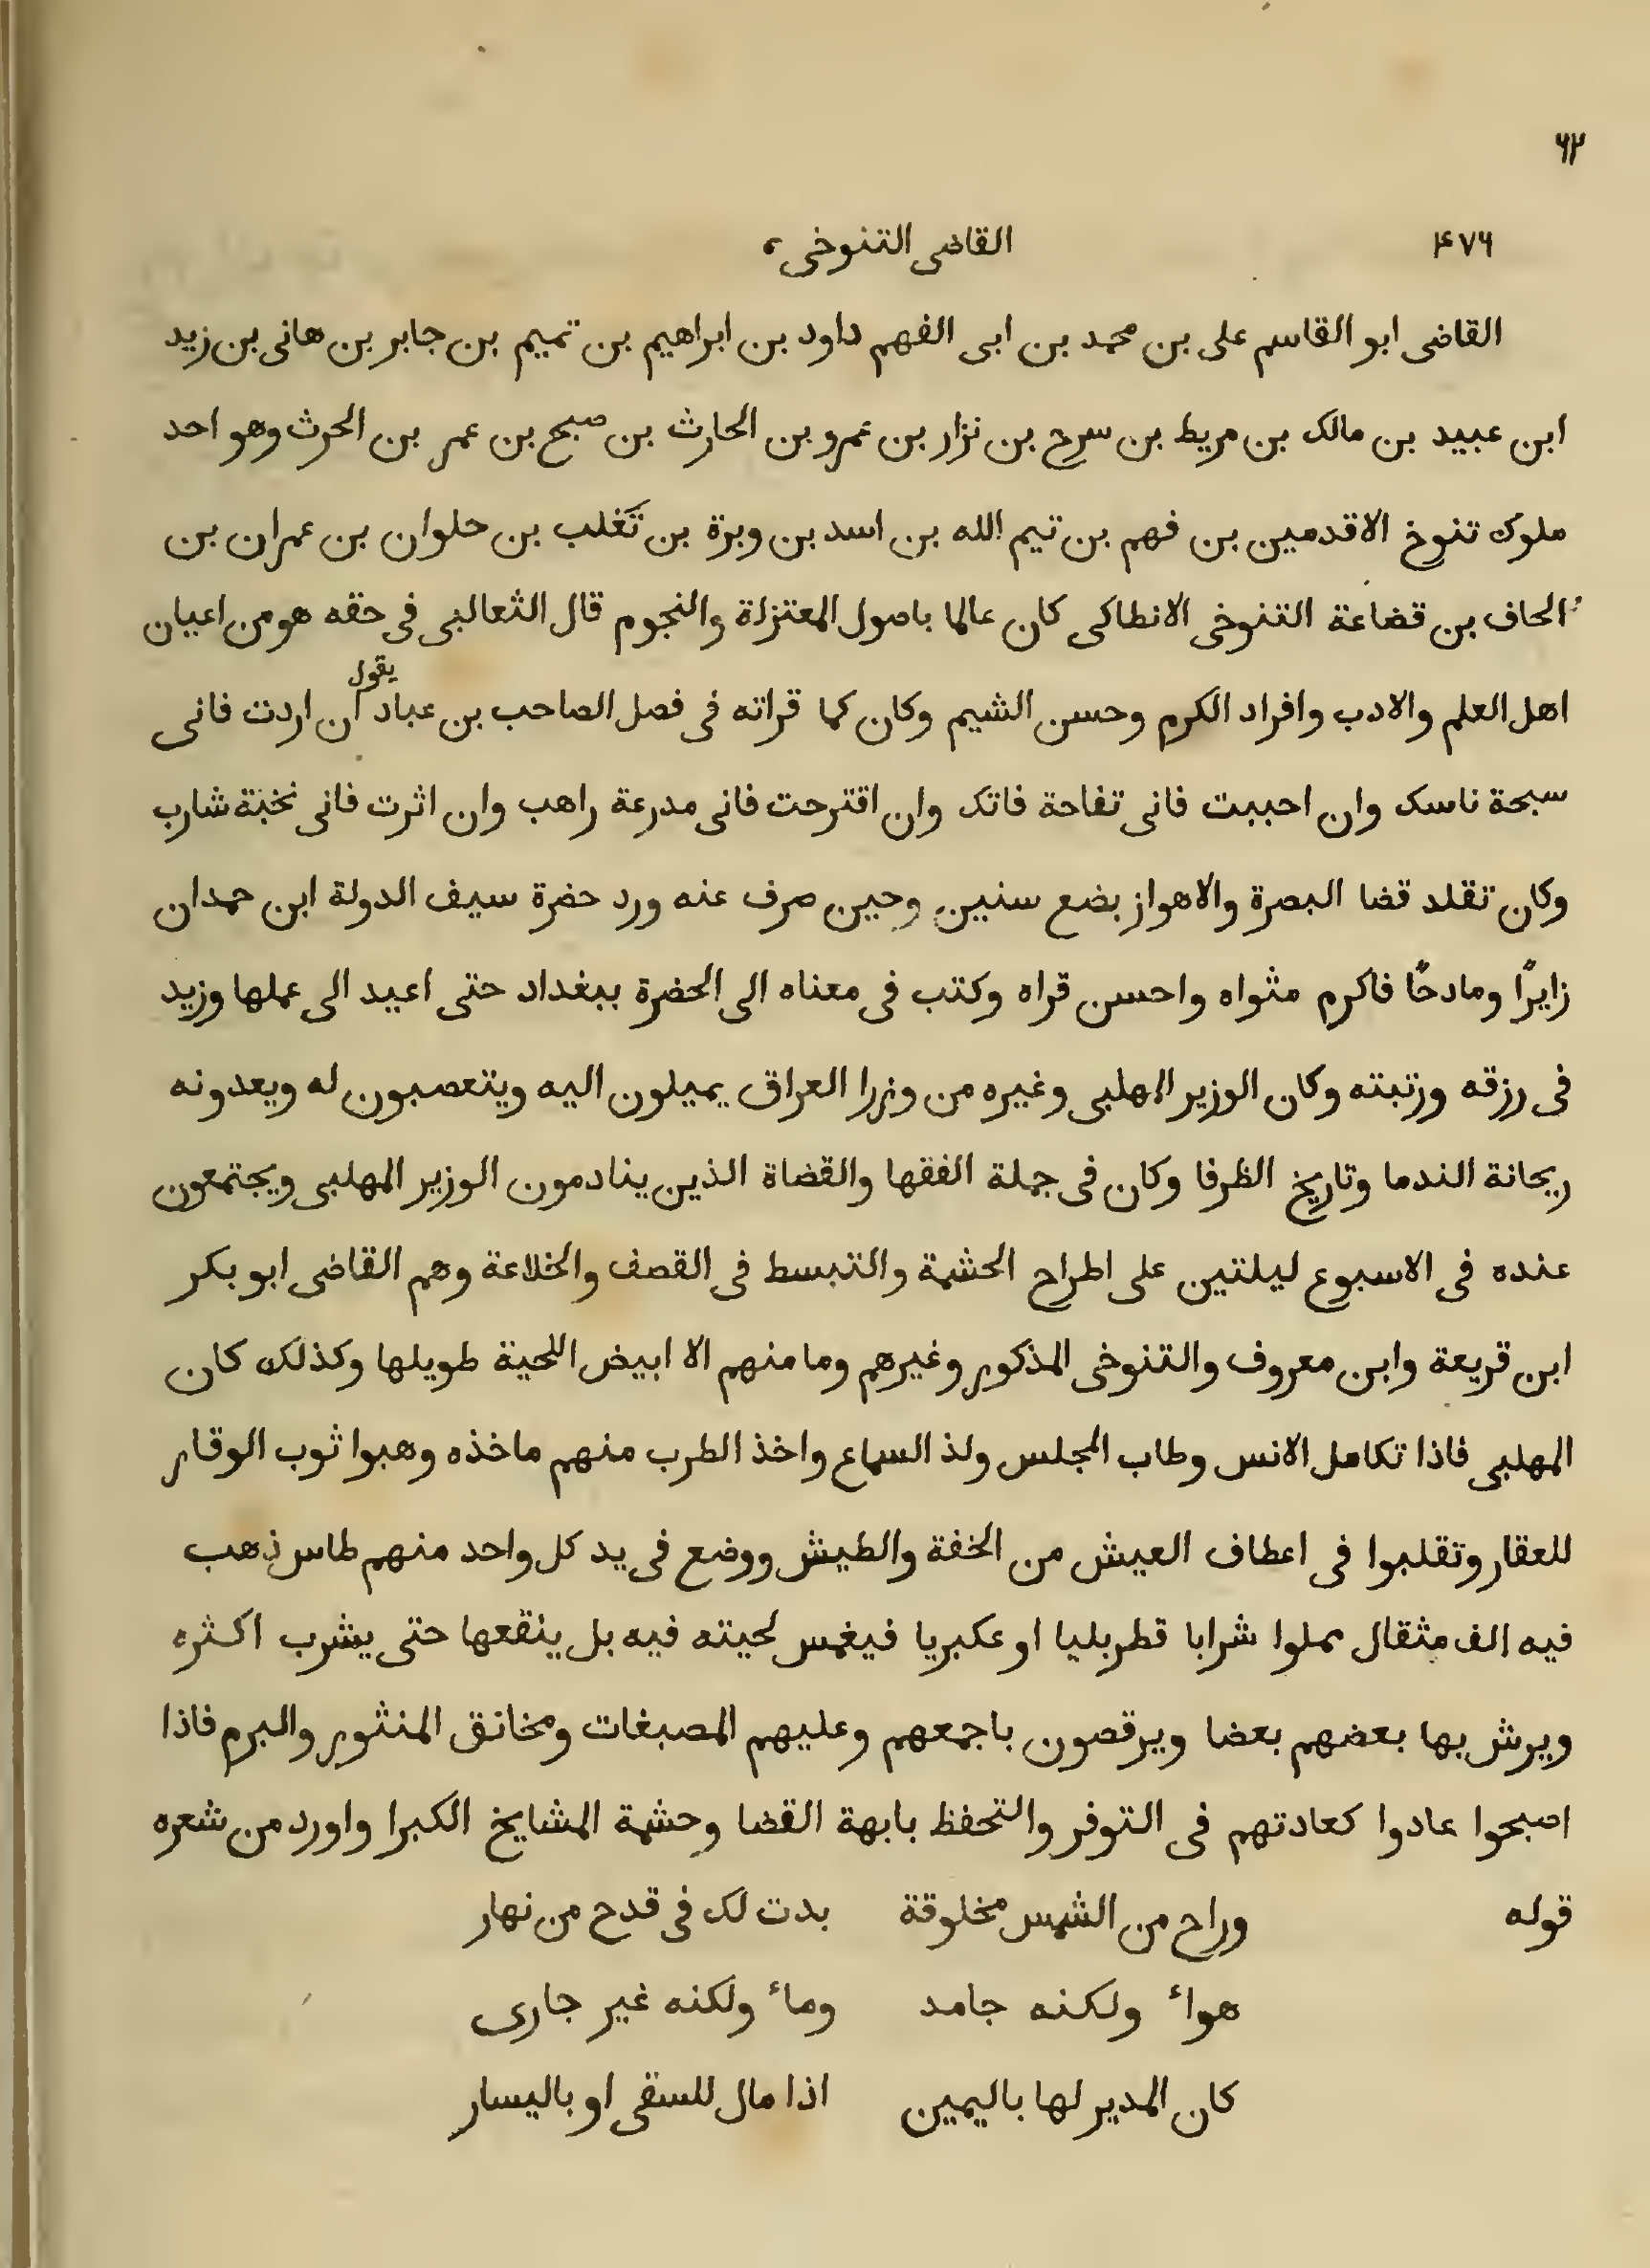 ٦٢
٤٧٦ القاضى التنوخى
القاضى ابو القاسم على بن محمد بن ابى الفهم داود بن ابراهيم بن تميم بن جابر بن هانى بن زيد
ابن عبيد بن مالك بن مريط بن سرح بن نزار بن عمرو بن الحارث بن صبح بن عمر بن الحرث وهو احد
ملوك تنوخ الاقدمين بن فهم بن تيم الله بن اسد بن وبرة بن تغلب بن حلوان بن عمران بن
الحاف بن قضاعة التنوخى الانطاكى كان عالما باصول المعتزلة والنجوم قال الثعالبى فى حقه هو من اعيان
اهل العلم والادب وافراد الكرم وحسن الشيم وكان كما قراته فى فصل الصاحب بن عباد يقول ان اردت فانى
سبحة ناسك وان احببت فانى تفاحة فاتك وان اقترحت فانى مدرعة راهب وان اثرت فانى نخبة شارب
وكان تقلد قضا البصرة والاهواز بضع سنين وحين صرف عنه ورد حضرة سيف الدولة ابن حمدان
زايرًا ومادحًا فاكرم مثواه واحسن قراه وكتب فى معناه الى الحضرة ببغداد حتى اعيد الى عملها وزيد
فى رزقه ورتبته وكان الوزير المهلبى وغيره من وزرا العراق يميلون اليه ويتعصبون له ويعدونه
ريحانة الندما وتاريخ الظرفا وكان فى جملة الفقها والقضاة الذين ينادمون الوزير المهلبى ويجتمعون
عنده فى الاسبوع ليلتين على اطراح الحشمة والتبسط فى القصف والخلاعة وهم القاضى ابو بكر
ابن قريعة وابن معروف والتنوخى المذكور وغيرهم وما منهم الا ابيض اللحية طويلها وكذلك كان
المهلبى فاذا تكامل الانس وطاب المجلس ولذ السماع واخذ الطرب منهم ماخذه وهبوا ثوب الوقار
للعقار وتقلبوا فى اعطاف العيش من الخفة والطيش ووضع فى يد كل واحد منهم طاس ذهب
فيه الف مثقال مملوا شرابا قطربليا او عكبريا فيغمس لحيته فيه بل ينقعها حتى يشرب اكثره
ويرش بها بعضهم بعضا ويرقصون باجمعهم وعليهم المصبغات ومخانق المنثور والبرم فاذا
اصبحوا عادوا كعادتهم فى التوفر والتحفظ بابهة القضا وحشمة المشايخ الكبرا واورد من شعره
قوله وراح من الشمس مخلوقة بدت لك فى قدح من نهار
هواء ولكنه جامد وماء ولكنه غير جارى
كان المدير لها باليمين اذا مال للسقى او باليسار